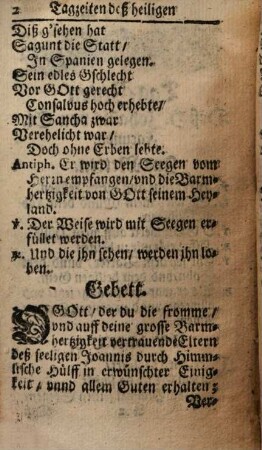 2 Tagzeiten deß heiligen
Diß g'sehen hat
Sagunt die Statt/
In Spanien gelegen.
Sein edles Gschlecht
Vor GOtt gerecht
Consalvus hoch erhebte/
Mit Sancha zwar
Verehelicht war/
Doch ohne Erben lebte.
Antiph. Er wird den Seegen vom
Herrn empfangen/und die Barm-
hertzigkeit von GOtt seinem Hey-
land.
℣. Der Weise wird mit Seegen er-
füllet werden.
℟. Und die jhn sehen/ werden jhn lo-
ben.
Gebett.
O GOtt/ der du die fromme/
und auff deine grosse Barm-
hertzigkeit vertrauende Eltern
deß seeligen Joannis durch Himm-
lische Hülff in erwünschter Einig-
keit / unnd allem Guten erhalten:
Ver-